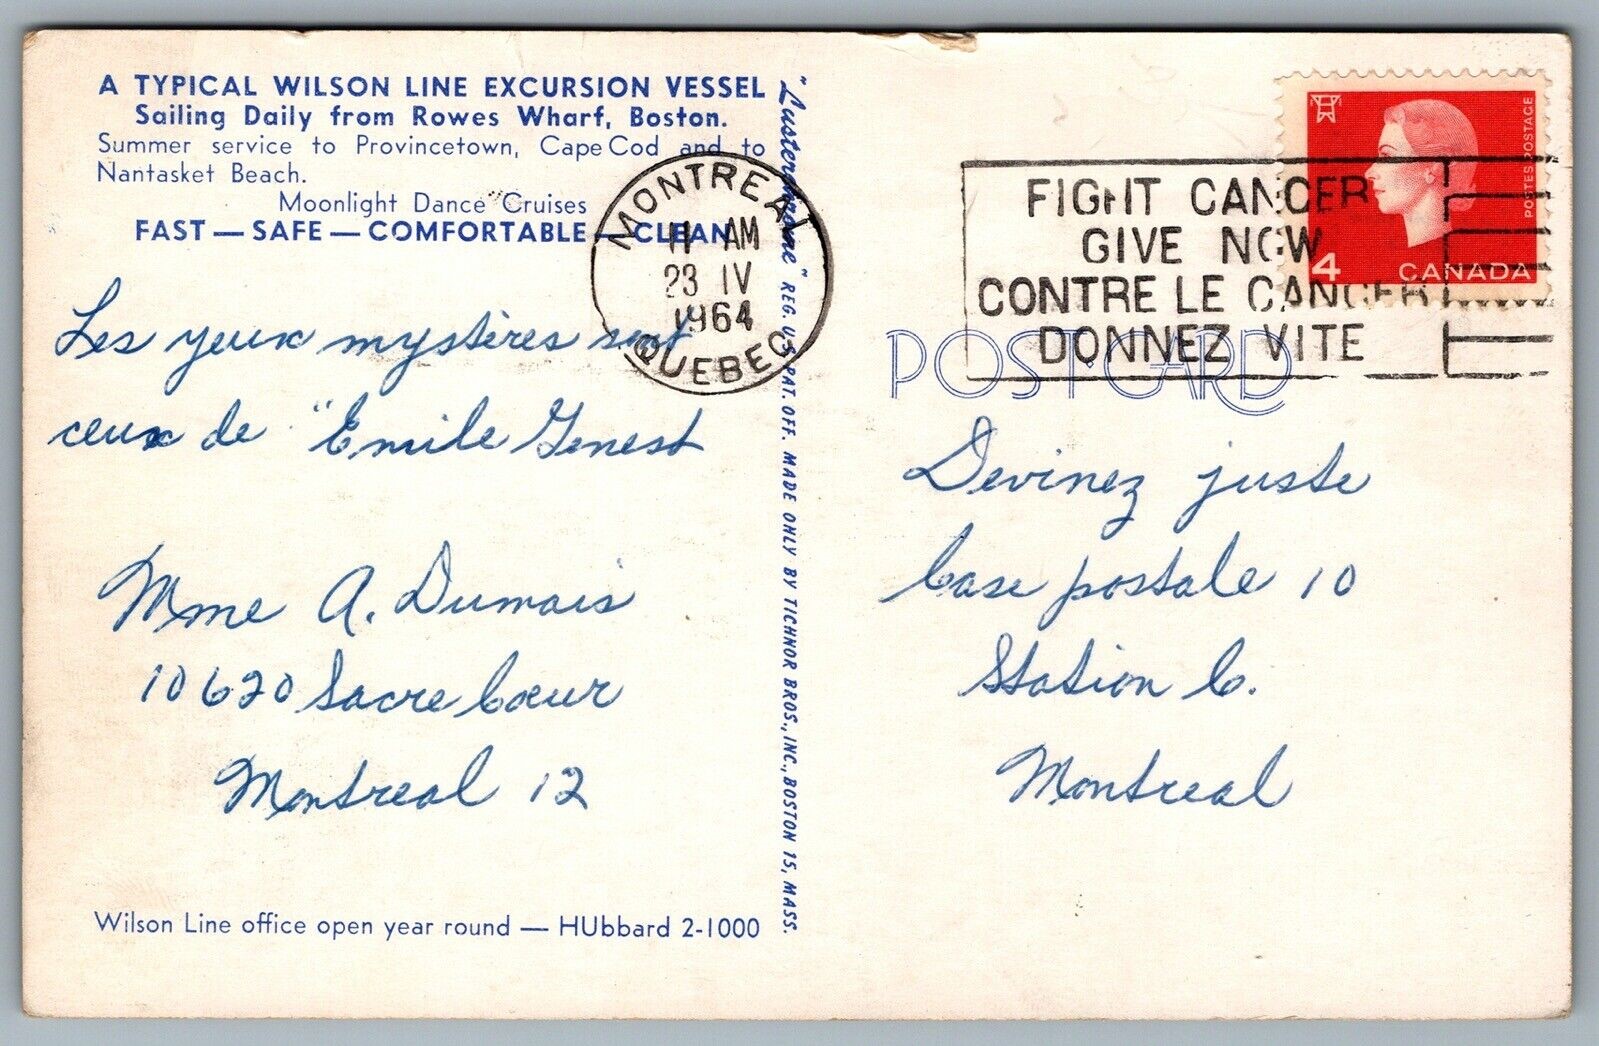 A TYPICAL WILSON LINE EXCURSION VESSEL
Sailing Daily from Rowes Wharf, Boston.
Summer service to Provincetown, Cape Cod and to
Nantasket Beach.
Moonlight Dance Cruises
FAST — SAFE — COMFORTABLE — CLEAN
Les yeux mystères sont
ceux de "Emile Genest
Mme A. Dumais
10620 Sacre Coeur
Montreal 12
Wilson Line office open year round — HUbbard 2-1000
"Lusterchrome" REG. U.S. PAT. OFF. MADE ONLY BY TICHNOR BROS., INC., BOSTON 15, MASS.
MONTREAL
11 AM
23 IV
1964
QUEBEC
FIGHT CANCER
GIVE NOW
CONTRE LE CANCER
DONNEZ VITE
POSTES POSTAGE
4 CANADA
POST CARD
Devinez juste
Case postale 10
Station C.
Montreal